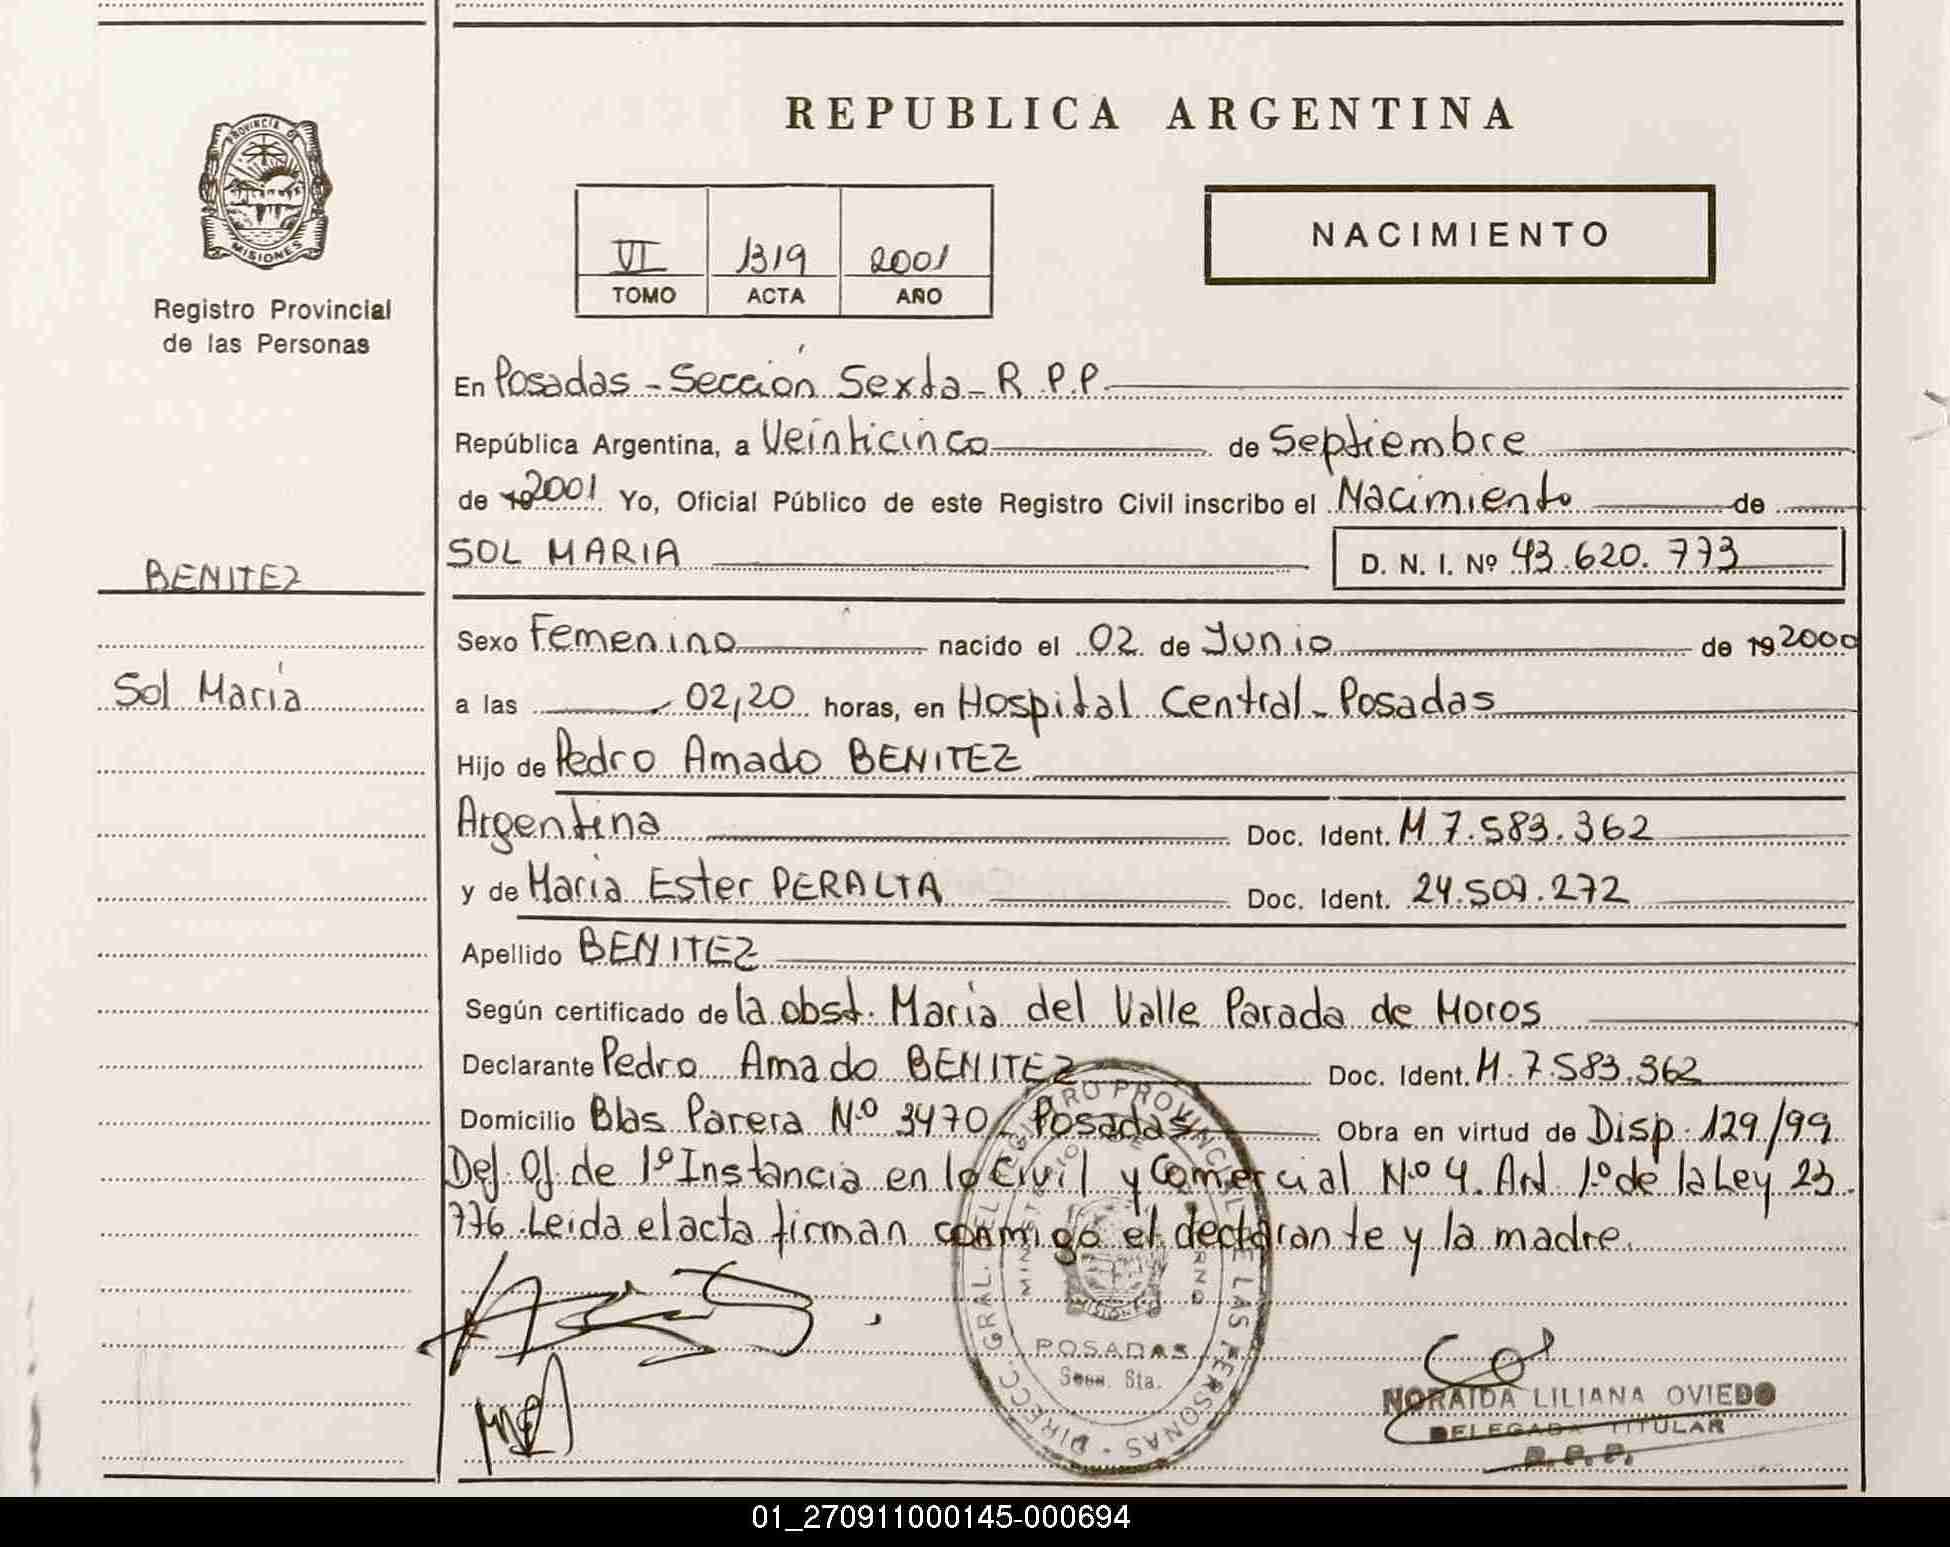 REPUBLICA ARGENTINA
PROVINCIA DE
MISIONES
Registro Provincial
de las Personas
VI 1319 2001
TOMO ACTA AÑO
NACIMIENTO
En Posadas - Sección Sexta - R.P.P.
República Argentina, a Veinticinco de Septiembre
de 19 2001 Yo, Oficial Público de este Registro Civil inscribo el Nacimiento de
SOL MARIA D. N. I. Nº 43.620.773
BENITEZ
Sol María
Sexo Femenino nacido el 02 de Junio de 19 2000
a las 02,20 horas, en Hospital Central - Posadas
Hijo de Pedro Amado BENITEZ
Argentina Doc. Ident. M 7.583.362
y de María Ester PERALTA Doc. Ident. 24.507.272
Apellido BENITEZ
Según certificado de la obst. María del Valle Parada de Moros
Declarante Pedro Amado BENITEZ Doc. Ident. M.7.583.362
Domicilio Blas Parera Nº 3470 - Posadas Obra en virtud de Disp. 129/99
Def. Of. de 1º Instancia en lo Civil y Comercial Nº 4. Art 1º de la Ley 23.
776. Leida el acta firman conmigo el declarante y la madre.
DIRECC. GRAL. DEL REGISTRO PROVINCIAL DE LAS PERSONAS
MISIONES
POSADAS
Secc. 6ta.
NORAIDA LILIANA OVIEDO
DELEGADA TITULAR
R.P.P.
01_270911000145-000694